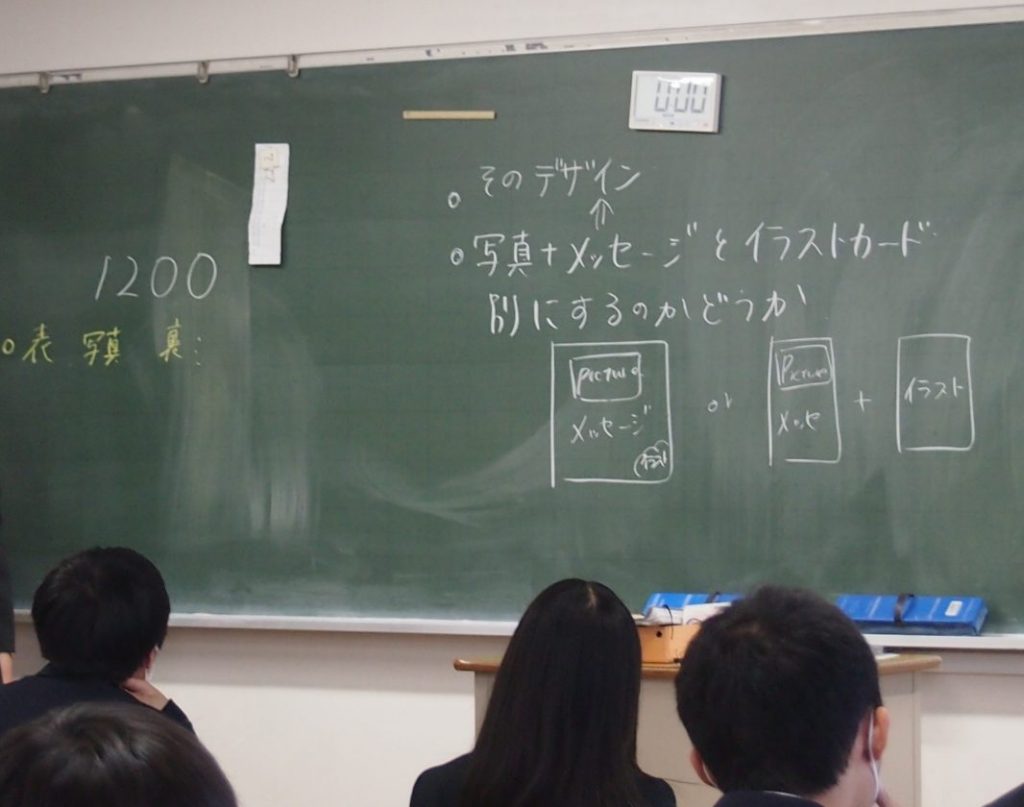 0:00
。そのデザイン
↑
。写真+メッセージとイラストカード
別にするのかどうか
1200
。表 写真 裏:
Picture
メッセージ
or
Picture
メッセ
+
イラスト